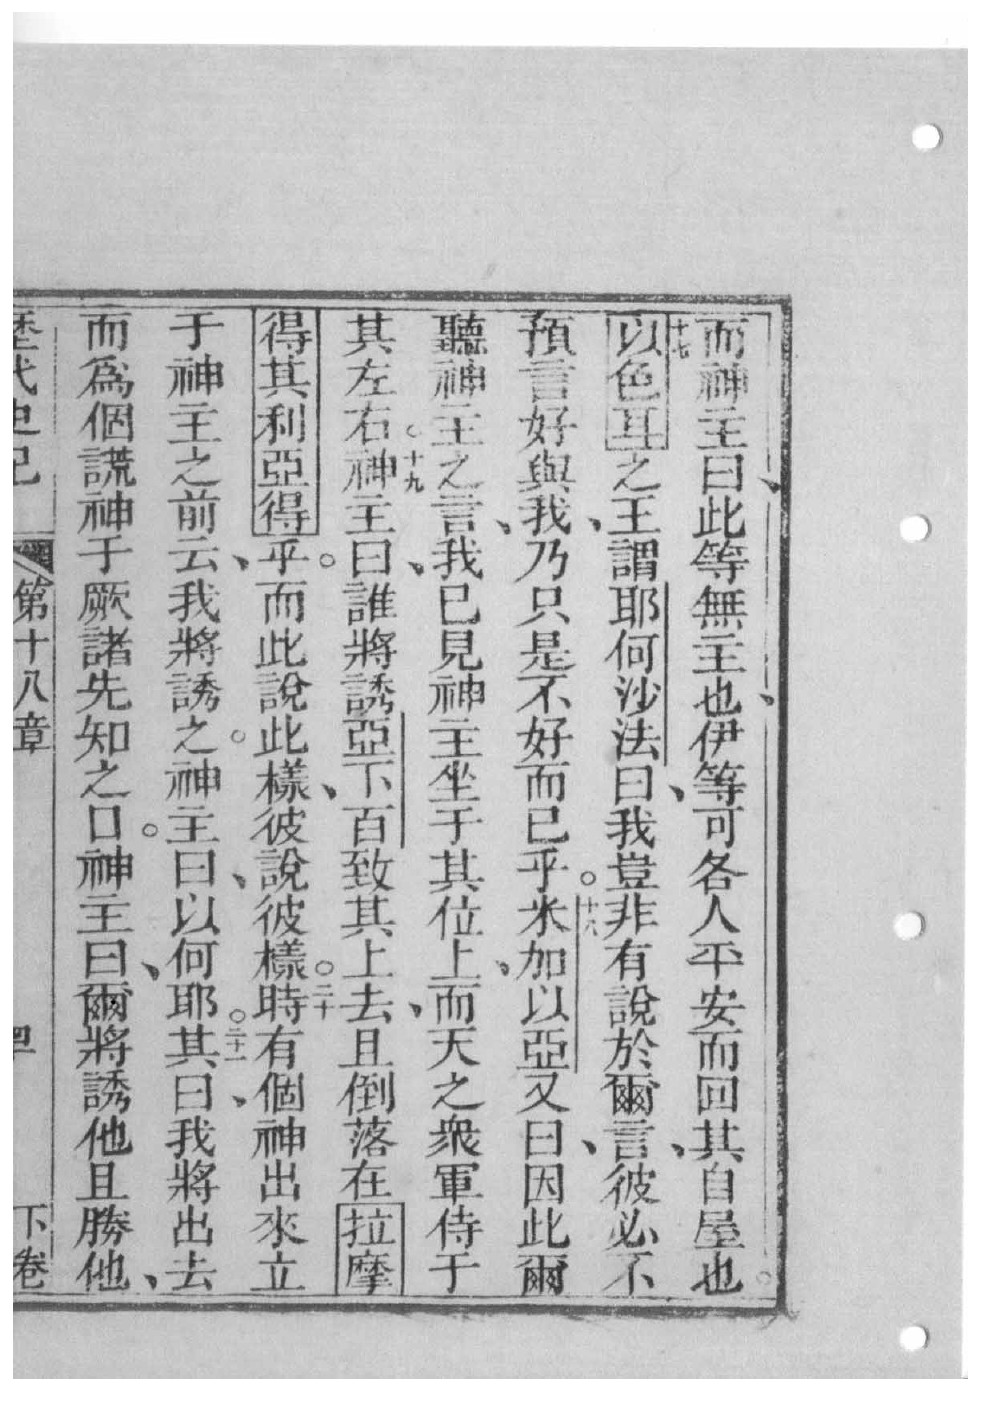 而神主曰、此等無主也、伊等可各人平安而回其自屋也。
十七以色耳之王謂耶何沙法曰、我豈非有說於爾言、彼必不
預言好與我、乃只是不好而已乎。十八米加以亞又曰、因此爾
聽神主之言、我已見神主坐于其位上、而天之衆軍侍于
其左右。十九神主曰、誰將誘亞下百致其上去、且倒落在拉摩
得其利亞得乎。而此說此樣、彼說彼樣。二十時有個神出來立
于神主之前云、我將誘之。神主曰、以何耶。二十一其曰、我將出去
而爲個謊神于厥諸先知之口。神主曰、爾將誘他且勝他、
歷代史記 第十八章 四 下卷